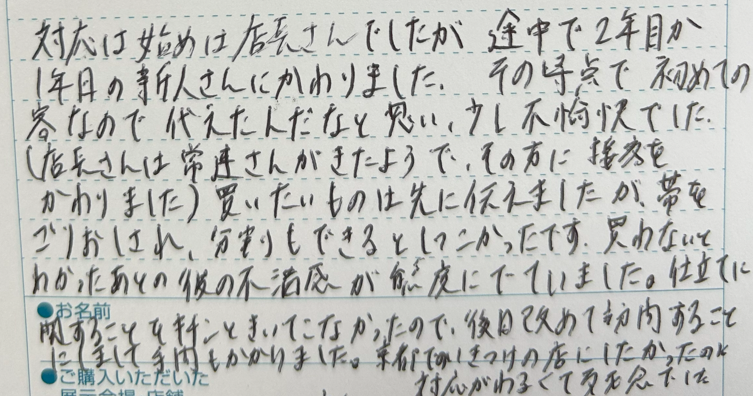 対応は始めは店長さんでしたが 途中で2年目か
1年目の新人さんにかわりました. その時点で 初めての
客なので 代えたんだなと思い、少し不愉快でした.
(店長さんは常連さんがきたようで、その方に 接客を
かわりました) 買いたいものは先に伝えましたが、帯を
ごりおしされ、分割りもできるとしつこかったです. 買わないと
わかったあとの彼の不満感が態度にでていました。仕立てに
●お名前
関することをキチンときいてこなかったので、後日改めて訪問すること
にしまして手間もかかりました。京都でかきつけの店にしたかったのに
●ご購入いただいた
対応がわるくて残念でした
展示会場・店舗